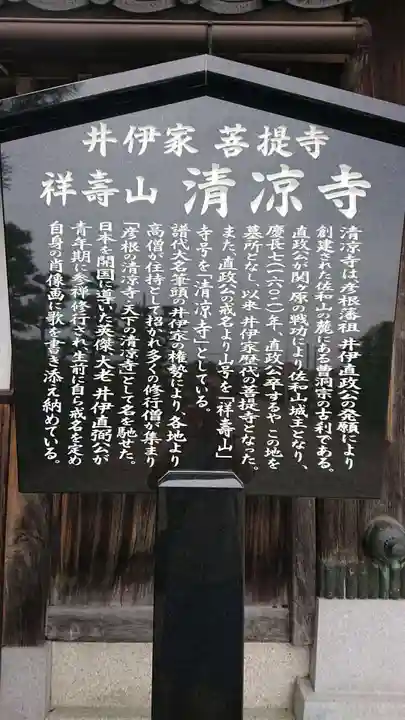 井伊家 菩提寺
祥壽山 清涼寺
清涼寺は彦根藩祖 井伊直政公の発願により
創建された佐和山の麓にある曹洞宗の古刹である。
直政公が関ヶ原の戦功により佐和山城主となり、
慶長七(一六〇二)年、直政公卒するやこの地を
墓所となし、以来 井伊家歴代の菩提寺となった。
また、直政公の戒名より山号を「祥壽山」
寺号を「清涼寺」としている。
譜代大名筆頭の井伊家の権勢により、各地より
高僧が住持として招かれ多くの修行僧が集まり
「彦根の清涼寺・天下の清涼寺」として名を馳せた。
日本を開国に導いた英傑 大老 井伊直弼公が
青年期に参禅修行され生前に自ら戒名を定め
自身の肖像画に歌を書き添え納めている。